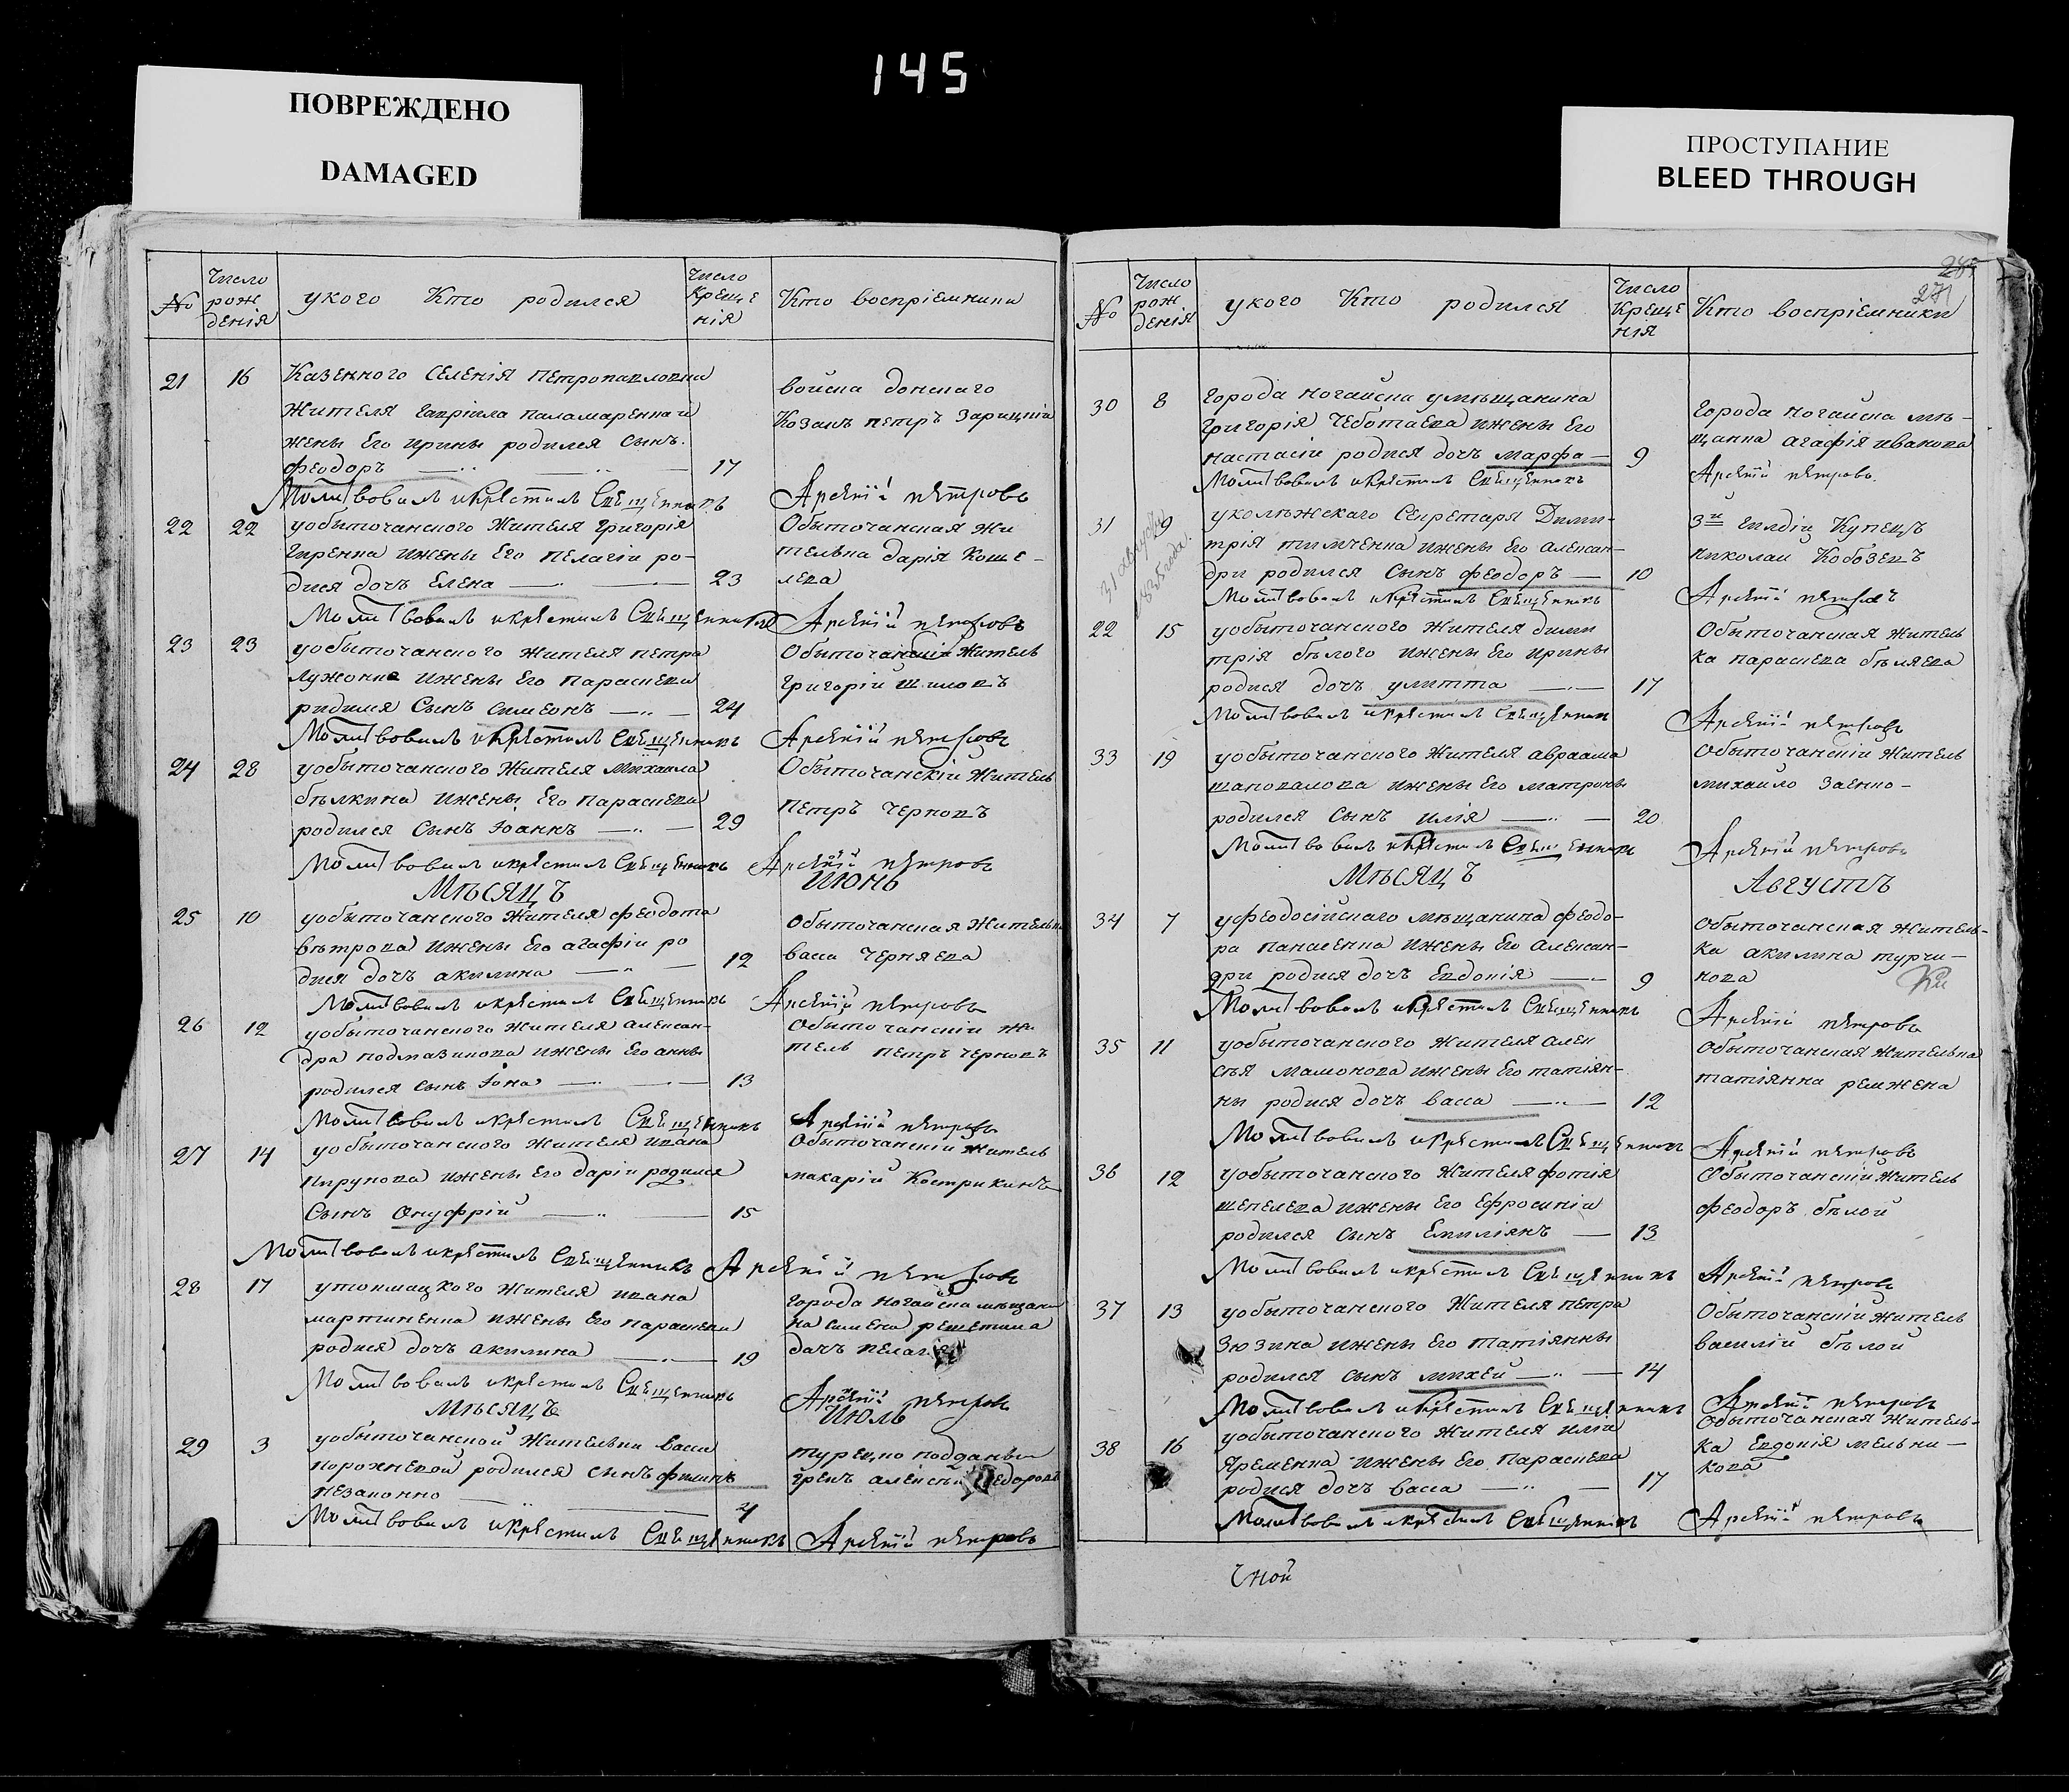 145
ПОВРЕЖДЕНО
DAMAGED
ПРОСТУПАНИЕ
BLEED THROUGH
№
Число рож денія
у кого Кто родился
Число Креще нія
Кто воспріемники
21 16 Казенного Селенія Петропавловки
Жителя Гавріила Паламаренка и
жены Его Ирины родился Сынъ
Феодоръ 17
войска донскаго
Козакъ Петръ Зарицкій
Молитвовалъ и Крѣстилъ Священникъ Арсеній Петровъ
22 22 у обыточанского Жителя Григорія
Гиренка и жены Его Пелагіи ро-
дися дочь Елена 23
Обыточанская Жи
телька дарія Коше-
лева
Молитвовалъ и Крѣстилъ Священникъ Арсеній Петровъ
23 23 у обыточанского Жителя Петра
и жены Его Параскеви
родился Сынъ Симеонъ 24
Обыточанскій Житель
Григорій Шиловъ
Молитвовалъ и Крѣстилъ Священникъ Арсеній Петровъ
24 28 у обыточанского Жителя Михаила
бѣлкина и жены Его Параскеви
родился Сынъ Іоаннъ 29
Обыточанскій Житель
Петръ Черновъ
Молитвовалъ и крѣстилъ Священникъ Арсеній Петровъ
Мѣсяцъ Июнь
25 10 у обыточанского Жителя Феодота
вѣтрова и жены Его агафіи ро
дися дочь акилина 12
Обыточанская Жителька
васса Черняева
Молитвовалъ и крѣстилъ Священникъ Арсеній Петровъ
26 12 у обыточанского Жителя алексан-
дра подмазикова и жены Его анны
родился Сынъ Іона 13
Обыточанскій жи
тель Петръ Черновъ
Молитвовалъ и крѣстилъ Священникъ Арсеній Петровъ
27 14 у обыточанского Жителя ивана
Пирунова и жены Его даріи родился
Сынъ Онуфрій 15
Обыточанскій Житель
макарій Кострикинъ
Молитвовалъ и крѣстилъ Священникъ Арсеній Петровъ
28 17 у токмацкого Жителя ивана
мартиненка и жены Его Параскеви
родися дочь акилина 19
Города Ногайска мѣщани
на симена решетина
дочь Пелагія
Молитвовалъ и крѣстилъ Священникъ Арсеній Петровъ
Мѣсяцъ Июль
29 3 у обыточанской Жительки васси
Порожневой родился Сынъ Филипъ
незаконно 4
турецко подданый
грекъ алексей Федоровъ
Молитвовалъ и Крѣстилъ Священникъ Арсеній Петровъ
285
271
№
Число рож денія
у кого Кто родился
Число Креще нія
Кто воспріемники
30 8 Города Ногайска у мѣщанина
Григорія Чеботаева и жены Его
настасіи родися дочь марфа 9
Города Ногайска мѣ-
щанка агафія иванова
Молитвовалъ и крѣстилъ Священникъ Арсеній Петровъ
31 9 у колѣжскаго Секретаря Дими-
трія тимченка и жены Его алексан-
дри родился Сынъ Феодоръ 10
3й гилдіи Купецъ
николай Кобозевъ
31 августа
835 года.
Молитвовалъ и Крѣстилъ Священникъ Арсеній Петровъ
22 15 у обыточанского Жителя дими
трія бѣлого и жены Его ирины
родися дочь улитта 17
Обыточанская житель
ка параскева бѣляева
Молитвовалъ и крѣстилъ Священникъ Арсеній Петровъ
33 19 у обыточанского Жителя авраама
шаповалова и жены Его матроны
родился Сынъ илія 20
Обыточанскій Житель
михайло заенко-
Молитвовалъ и Крѣстилъ Священникъ Арсеній Петровъ
Мѣсяцъ Августъ
34 7 у феодосійскаго мѣщанина феодо-
ра панасенка и жены Его алексан-
дри родися дочь Евдокія 9
Обыточанская житель-
ка акилина турчи-
нова
Молитвовалъ и Крѣстилъ Священникъ Арсеній Петровъ
35 11 у обыточанского Жителя алек
сѣя мамонова и жены Его татіян-
ны родися дочь васса 12
Обыточанская жителька
татіянна ремжена
Молитвовалъ и крѣстилъ Священникъ Арсеній Петровъ
36 12 у обыточанского Жителя фотія
шепелева и жены Его Ефросиніи
родился Сынъ Емиліянъ 13
Обыточанскій Житель
феодоръ бѣлой
Молитвовалъ и крѣстилъ Священникъ Арсеній Петровъ
37 13 у обыточанского Жителя петра
Зюзина и жены Его татіянны
родился сынъ михей 14
Обыточанскій житель
василій бѣлой
Молитвовалъ и Крѣстилъ Священникъ Арсеній Петровъ
38 16 у обыточанского Жителя иліи
Яременка и жены Его Параскева
родися дочь васса 17
Обыточанская Житель-
ка Евдокія мельни-
кова
Молитвовалъ и крѣстилъ Священникъ Арсеній Петровъ